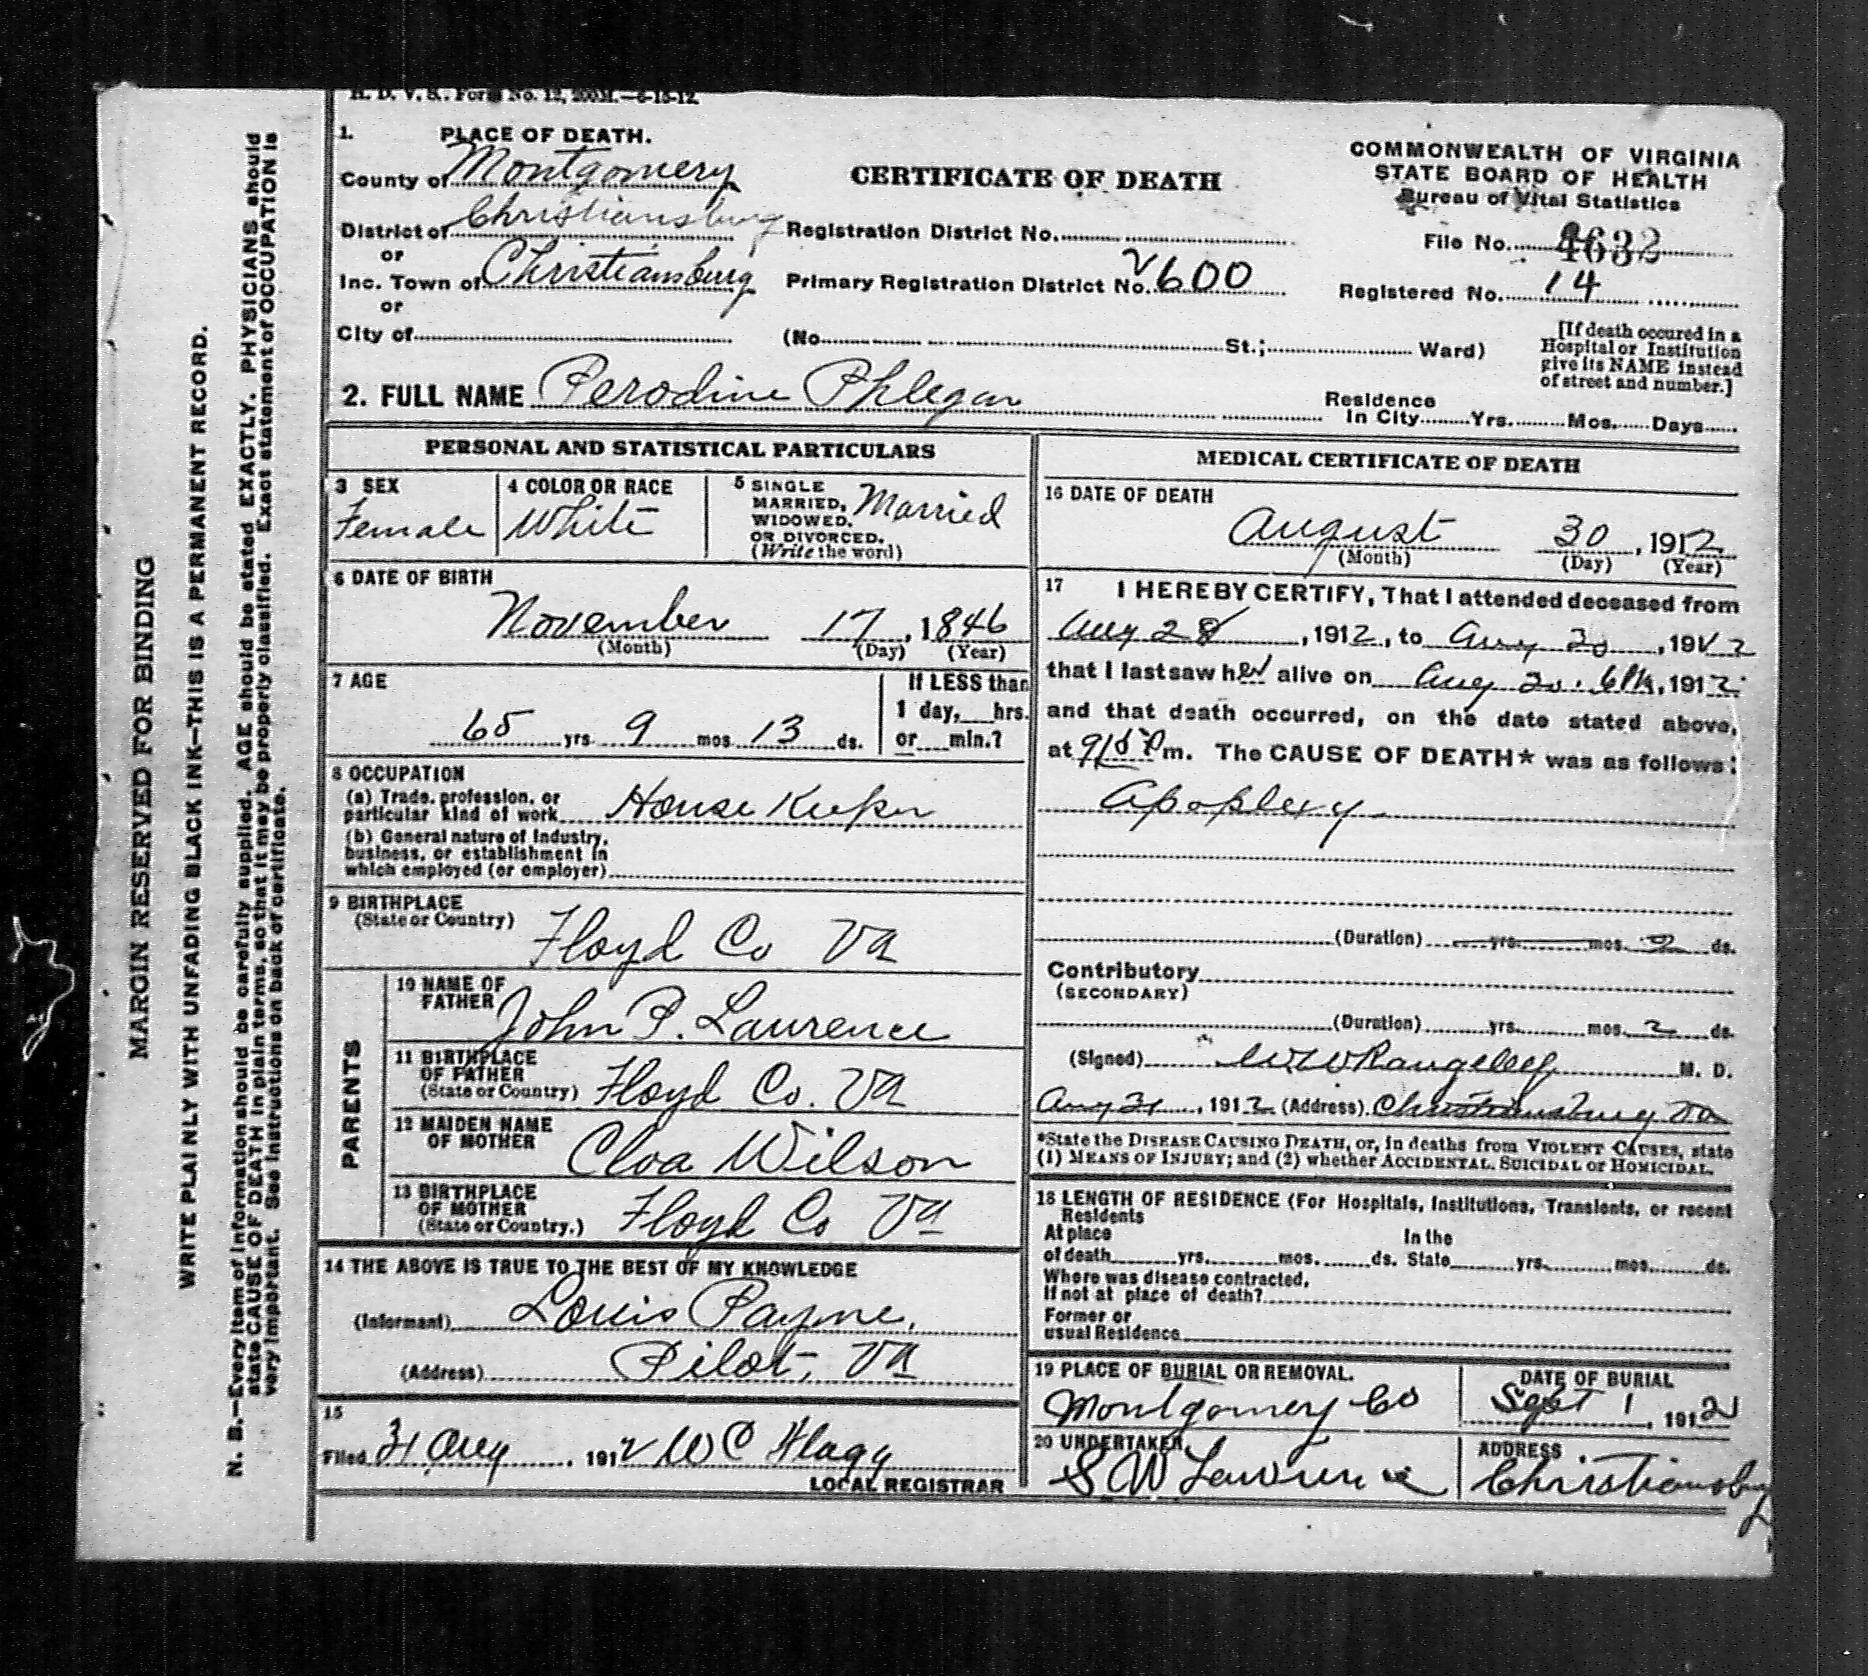 H. D. V. S. Form No. 12, 200M.—6-15-12.
1. PLACE OF DEATH.
County of Montgomery
District of Christiansburg
or
Inc. Town of Christiansburg
or
City of
CERTIFICATE OF DEATH
COMMONWEALTH OF VIRGINIA
STATE BOARD OF HEALTH
Bureau of Vital Statistics
Registration District No.
File No.
Primary Registration District No. 2600
Registered No. 14
(No. St.; Ward)
[If death occured in a
Hospital or Institution
give its NAME instead
of street and number.]
2. FULL NAME Perodine Phlegar
Residence
In City Yrs. Mos. Days
PERSONAL AND STATISTICAL PARTICULARS
3 SEX
Female
4 COLOR OR RACE
White
5 SINGLE
MARRIED,
WIDOWED,
OR DIVORCED.
(Write the word)
Married
6 DATE OF BIRTH
November 17, 1846
(Month) (Day) (Year)
7 AGE
65 yrs 9 mos 13 ds.
If LESS than
1 day, hrs.
or min.?
8 OCCUPATION
(a) Trade, profession, or
particular kind of work House Keeper
(b) General nature of Industry,
business, or establishment in
which employed (or employer)
9 BIRTHPLACE
(State or Country)
Floyd Co Va
PARENTS
10 NAME OF
FATHER
John P. Laurence
11 BIRTHPLACE
OF FATHER
(State or Country) Floyd Co. Va
12 MAIDEN NAME
OF MOTHER
Cloa Wilson
13 BIRTHPLACE
OF MOTHER
(State or Country.) Floyd Co Va
14 THE ABOVE IS TRUE TO THE BEST OF MY KNOWLEDGE
(Informant) Louis Payne,
(Address) Pilot, Va
15
Filed 31 Aug, 1912 W C Flagg
LOCAL REGISTRAR
MEDICAL CERTIFICATE OF DEATH
16 DATE OF DEATH
August 30, 1912
(Month) (Day) (Year)
17 I HEREBY CERTIFY, That I attended deceased from
Aug 28, 1912, to Aug 30, 1912
that I last saw her alive on Aug 30. 6 PM, 1912
and that death occurred, on the date stated above,
at P m. The CAUSE OF DEATH* was as follows:
Apoplexy
(Duration) yrs. mos. 2 ds.
Contributory
(SECONDARY)
(Duration) yrs. mos. 2 ds.
(Signed) M. D.
Aug 31, 1912 (Address) Christiansburg Va
*State the DISEASE CAUSING DEATH, or, in deaths from VIOLENT CAUSES, state
(1) MEANS OF INJURY; and (2) whether ACCIDENTAL, SUICIDAL or HOMICIDAL.
18 LENGTH OF RESIDENCE (For Hospitals, Institutions, Transients, or recent
Residents
At place In the
of death yrs. mos. ds. State yrs. mos. ds.
Where was disease contracted,
If not at place of death?
Former or
usual Residence
19 PLACE OF BURIAL OR REMOVAL.
Montgomery Co
DATE OF BURIAL
Sept 1, 1912
20 UNDERTAKER
S W Lawrence
ADDRESS
Christiansburg
MARGIN RESERVED FOR BINDING
WRITE PLAINLY WITH UNFADING BLACK INK—THIS IS A PERMANENT RECORD.
N. B.—Every item of information should be carefully supplied. AGE should be stated EXACTLY. PHYSICIANS should
state CAUSE OF DEATH in plain terms, so that it may be properly classified. Exact statement of OCCUPATION is
very important. See instructions on back of certificate.